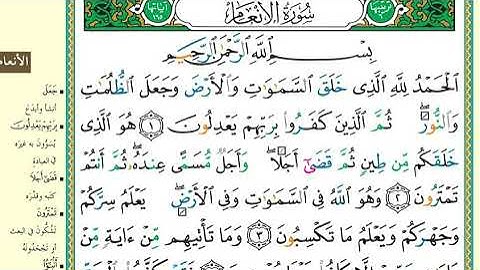 سُورَةُ الأَنْعَامِ
بِسْمِ اللَّهِ الرَّحْمَٰنِ الرَّحِيمِ
الْحَمْدُ لِلَّهِ الَّذِى خَلَقَ السَّمَٰوَٰتِ وَالْأَرْضَ وَجَعَلَ الظُّلُمَٰتِ
وَالنُّورَ ۖ ثُمَّ الَّذِينَ كَفَرُوا بِرَبِّهِمْ يَعْدِلُونَ ١ هُوَ الَّذِى
خَلَقَكُم مِّن طِينٍ ثُمَّ قَضَىٰٓ أَجَلًا ۖ وَأَجَلٌ مُّسَمًّى عِندَهُۥ ۖ ثُمَّ أَنتُمْ
تَمْتَرُونَ ٢ وَهُوَ اللَّهُ فِى السَّمَٰوَٰتِ وَفِى الْأَرْضِ ۖ يَعْلَمُ سِرَّكُمْ
وَجَهْرَكُمْ وَيَعْلَمُ مَا تَكْسِبُونَ ٣ وَمَا تَأْتِيهِم مِّنْ ءَايَةٍ مِّنْ
الأنعام
جَعَلَ
أنشأ وأبدع
بِرَبِّهِمْ يَعْدِلُونَ
يسوون به غيره
في العبادة
قَضَىٰ أَجَلًا
كتبه وقدره
تَمْتَرُونَ
تشكون في البعث
أو تجحدونه